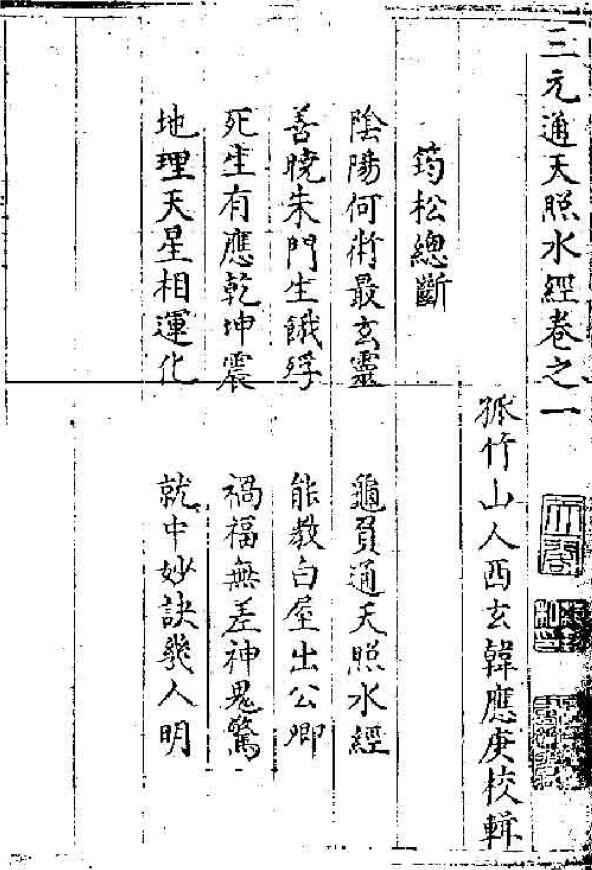 三元通天照水經卷之一
孤竹山人西玄韓應庚校輯
筠松總斷
陰陽何術最玄靈　龜員通天照水經
善曉朱門生餓殍　能教白屋出公卿
死生有應乾坤震　禍福無差神鬼驚
地理天星相運化　就中妙訣幾人明